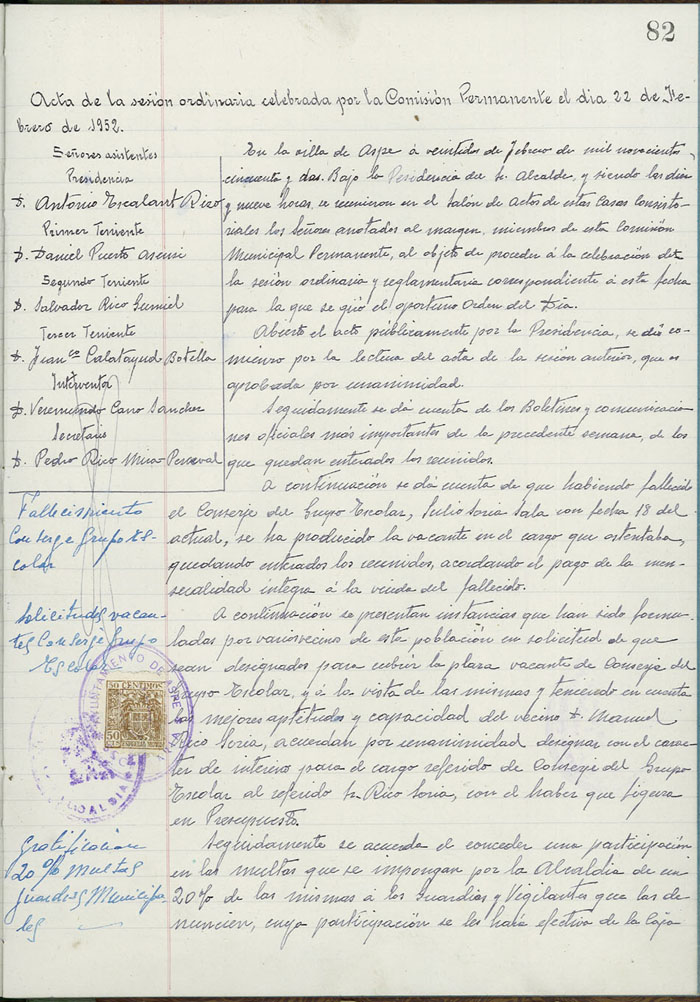 82
Acta de la sesión ordinaria celebrada por la Comisión Permanente el dia 22 de Fe-
brero de 1952.
Señores asistentes
Presidencia
D. Antonio Escalant Rizo
Primer Teniente
D. Daniel Puerto Asensi
Segundo Teniente
D. Salvador Rico Gumiel
Tercer Teniente
D. Juan Calatayud Botella
Interventor
D. Veremundo Cano Sanchez
Secretario
D. Pedro Rico Mira-Perceval
En la villa de Aspe á veintidos de febrero de mil novecientos
cincuenta y dos. Bajo la Presidencia del Sr. Alcalde, y siendo las diez
y nueve horas, se reunieron en el Salón de actos de estas Casas Consisto-
riales los Señores anotados al margen, miembros de esta Comisión
Municipal Permanente, al objeto de proceder á la celebración de
la sesión ordinaria y reglamentaria correspondiente á este fecha
para la que se giró el oportuno Orden del Día.
Abierto el acto públicamente por la Presidencia, se dió co-
mienzo por la lectura del acta de la sesión anterior, que es
aprobada por unanimidad.
Seguidamente se dá cuenta de los Boletines y comunicacio-
nes oficiales más importantes de la precedente semana, de los
que quedan enterados los reunidos.
Fallecimiento
Conserge Grupo Es-
colar
A continuación se dá cuenta de que habiendo fallecido
el Conserje del Grupo Escolar, Julio Soria Sala con fecha 18 del
actual, se ha producido la vacante en el cargo que ostentaba,
quedando enterados los reunidos, acordando el pago de la men-
sualidad integra á la viuda del fallecido.
Solicitudes vacan-
tes Conserge Grupo
Escolar
A continuación se presentan instancias que han sido formu-
ladas por varios vecinos de esta población en solicitud de que
sean designados para cubrir la plaza vacante de Conserje del
Grupo Escolar, y á la vista de las mismas y teniendo en cuenta
las mejores aptitudes y capacidad del vecino D. Manuel
Rico Soria, acuerdan por unanimidad designar con el carac-
ter de interino para el cargo referido de Conserje del Grupo
Escolar al referido Sr. Rico Soria, con el haber que figura
en Presupuesto.
AYUNTAMIENTO DE ASPE
ALCALDIA
50 CENTIMOS
50
Gratificación
20 % multas
guardias Municipa-
les
Seguidamente se acuerda el conceder una participación
en las multas que se impongan por la Alcaldia de un
20% de las mismas á los Guardias y Vigilantes que las de-
nuncien, cuya participación se les hará efectiva de la Caja